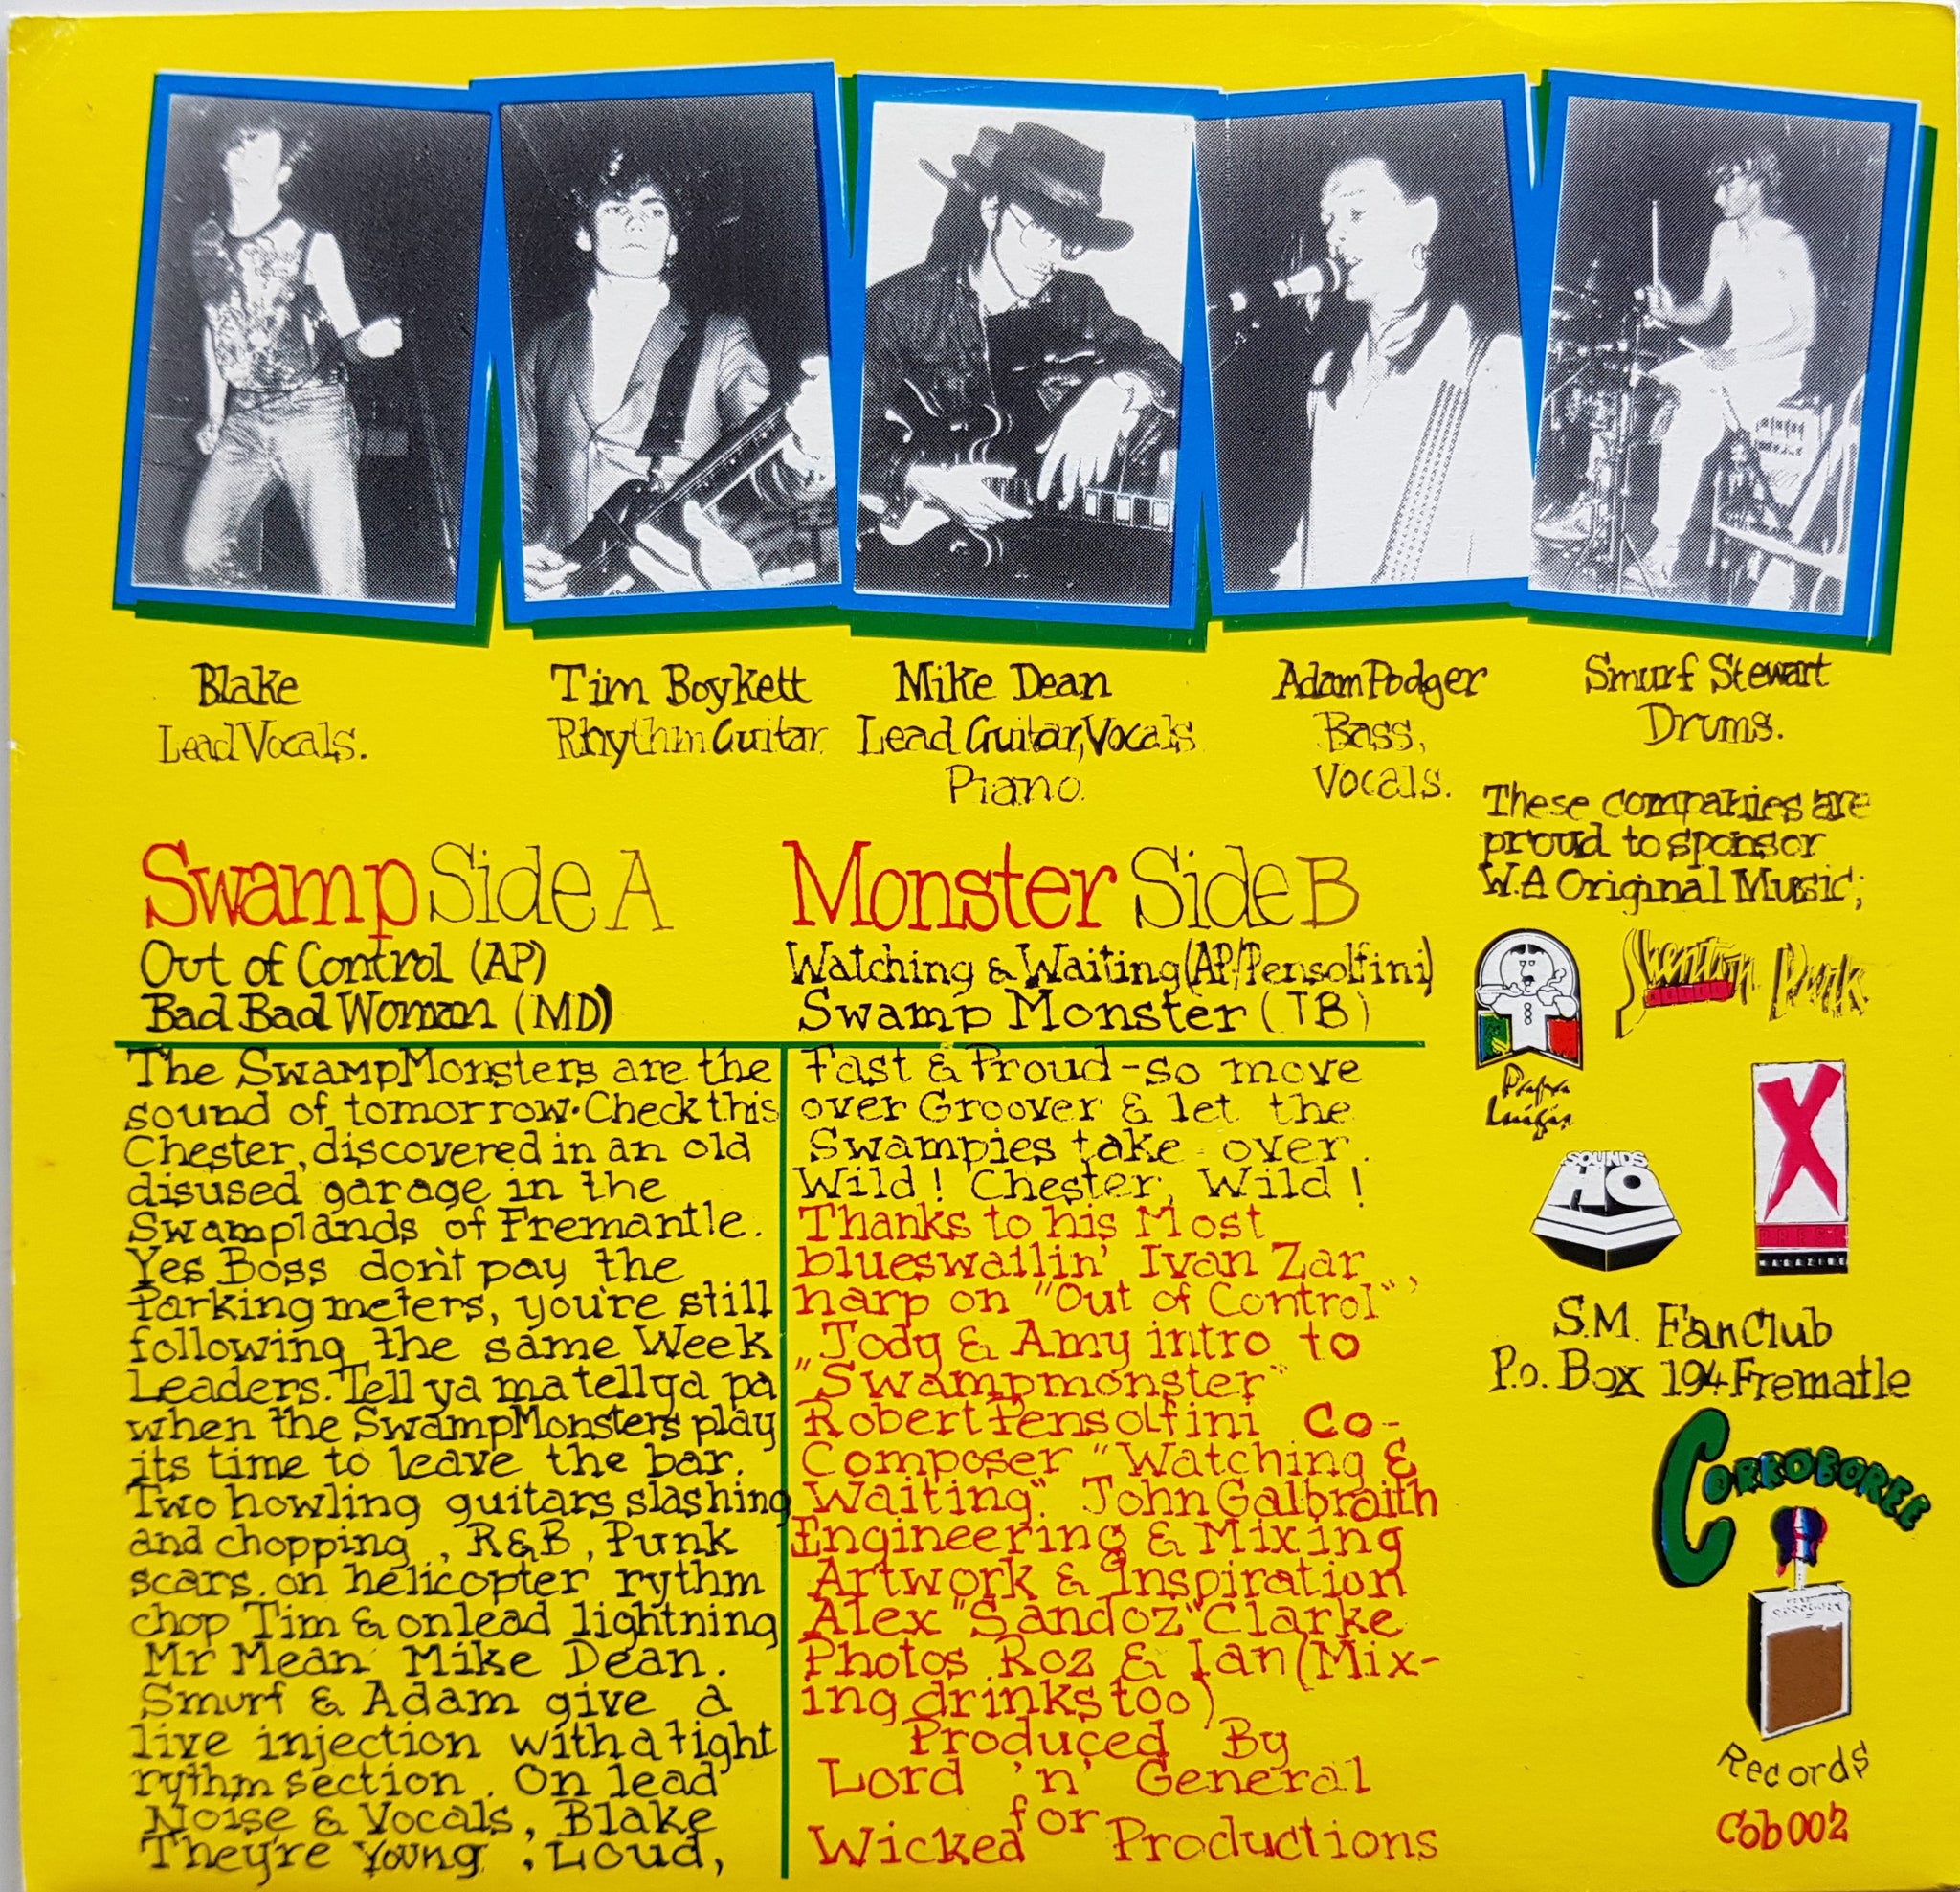 Blake
Lead Vocals.
Tim Boykett
Rhythm Guitar.
Mike Dean
Lead Guitar, Vocals
Piano.
Adam Podger
Bass,
Vocals.
Smurf Stewart
Drums.
Swamp Side A
Out of Control (AP)
Bad Bad Woman (MD)
Monster Side B
Watching & Waiting (AP/Pensolfini)
Swamp Monster (TB)
The SwampMonsters are the
sound of tomorrow. Check this
Chester, discovered in an old
disused garage in the
Swamplands of Fremantle.
Yes Boss don't pay the
Parking meters, you're still
following the same Week
Leaders. Tell ya ma tell ya pa
when the SwampMonsters play
its time to leave the bar.
Two howling guitars slashing
and chopping, R&B, Punk
scars. on helicopter rythm
chop Tim & on lead lightning
Mr Mean Mike Dean.
Smurf & Adam give a
live injection with a tight
rythm section. On lead
Noise & Vocals, Blake
They're Young, Loud,
Fast & Proud - so move
over Groover & let the
Swampies take over.
Wild! Chester, Wild!
Thanks to his Most
blueswailin' Ivan Zar,
harp on "Out of Control",
Jody & Amy intro to
"Swampmonster"
Robert Pensolfini Co-
Composer "Watching &
Waiting". John Galbraith
Engineering & Mixing
Artwork & Inspiration
Alex "Sandoz" Clarke
Photos Roz & Ian (Mix-
ing drinks too)
Produced By
Lord 'n' General
for
Wicked Productions
These companies are
proud to sponsor
W.A Original Music;
Shenton Park
HOTEL
Papa
Luigis
SOUNDS
HQ
X
PRESS
MAGAZINE
S.M. Fan Club
P.o. Box 194 Frematle
CORROBOREE
Records
Cob 002